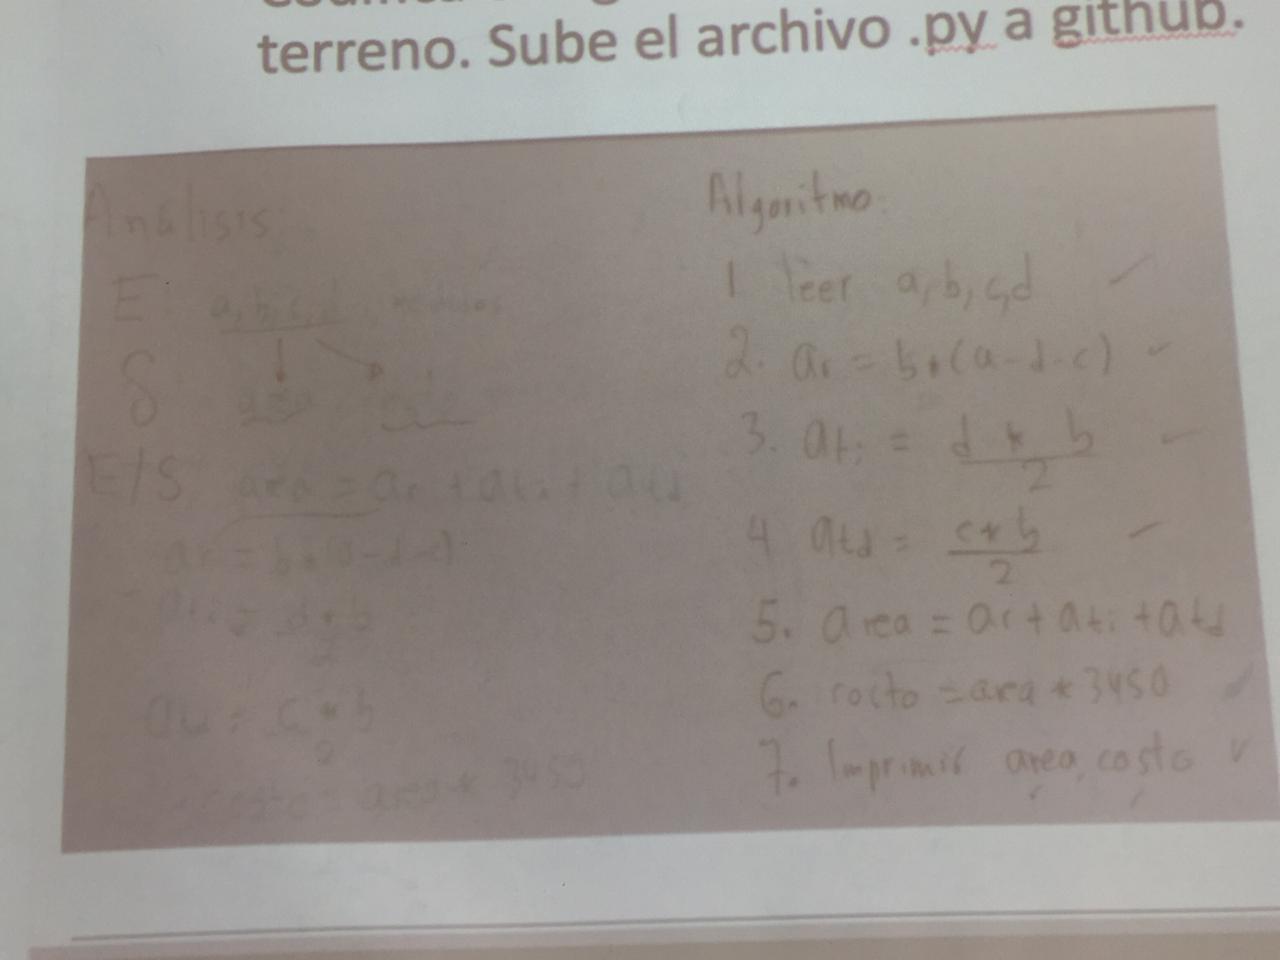 terreno. Sube el archivo .py a github.
Análisis:
E: a, b, c, d
S
E/S area = ar + ati + atd
ar = b * (a-d-c)
ati = d * b
2
c * b
2
costo = area * 3450
Algoritmo:
1 leer a, b, c, d
2. ar = b * (a - d - c)
3. ati = d * b
2
4 atd = c * b
2
5. area = ar + ati + atd
6. costo = area * 3450
7. Imprimir area, costo